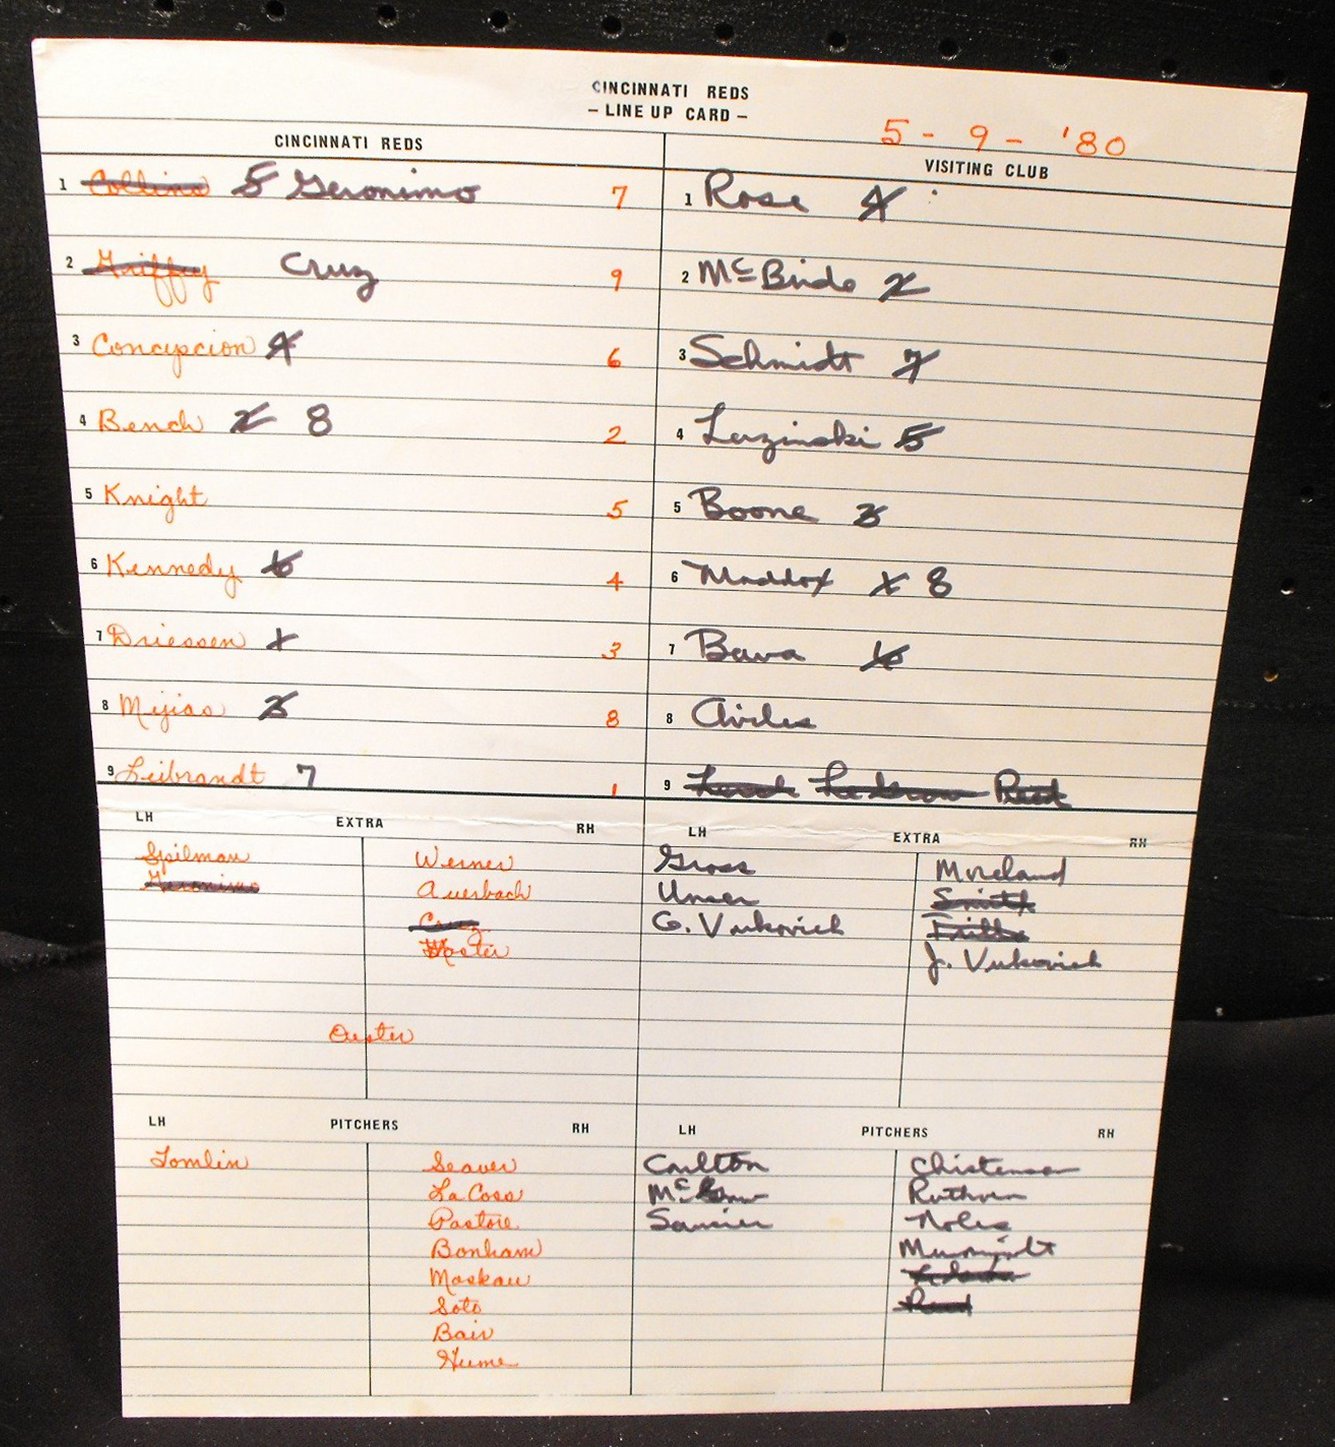 CINCINNATI REDS
– LINE UP CARD –
5 - 9 - '80
CINCINNATI REDS
1 Collins 5 Geronimo 7
2 Griffey Cruz 9
3 Concepcion 4 6
4 Bench 2 8 2
5 Knight 5
6 Kennedy 6 4
7 Driessen 1 3
8 Mijias 3 8
9 Leibrandt 7 1
VISITING CLUB
1 Rose 4
2 McBride 2
3 Schmidt 7
4 Luzinski 5
5 Boone 3
6 Maddox 1 8
7 Bowa 6
8 Aviles
9 Lerch Reed
LH EXTRA RH
Spilman
Geronimo
Werner
Auerbach
Cruz
Oester
LH EXTRA RH
Gross
Unser
G. Vukovich
Moreland
Smith
J. Vukovich
LH PITCHERS RH
Tomlin
Seaver
LaCoss
Pastore
Bonham
Moskau
Soto
Bair
Hume
LH PITCHERS RH
Carlton
Saucier
Christenson
Ruthven
Noles
Reed